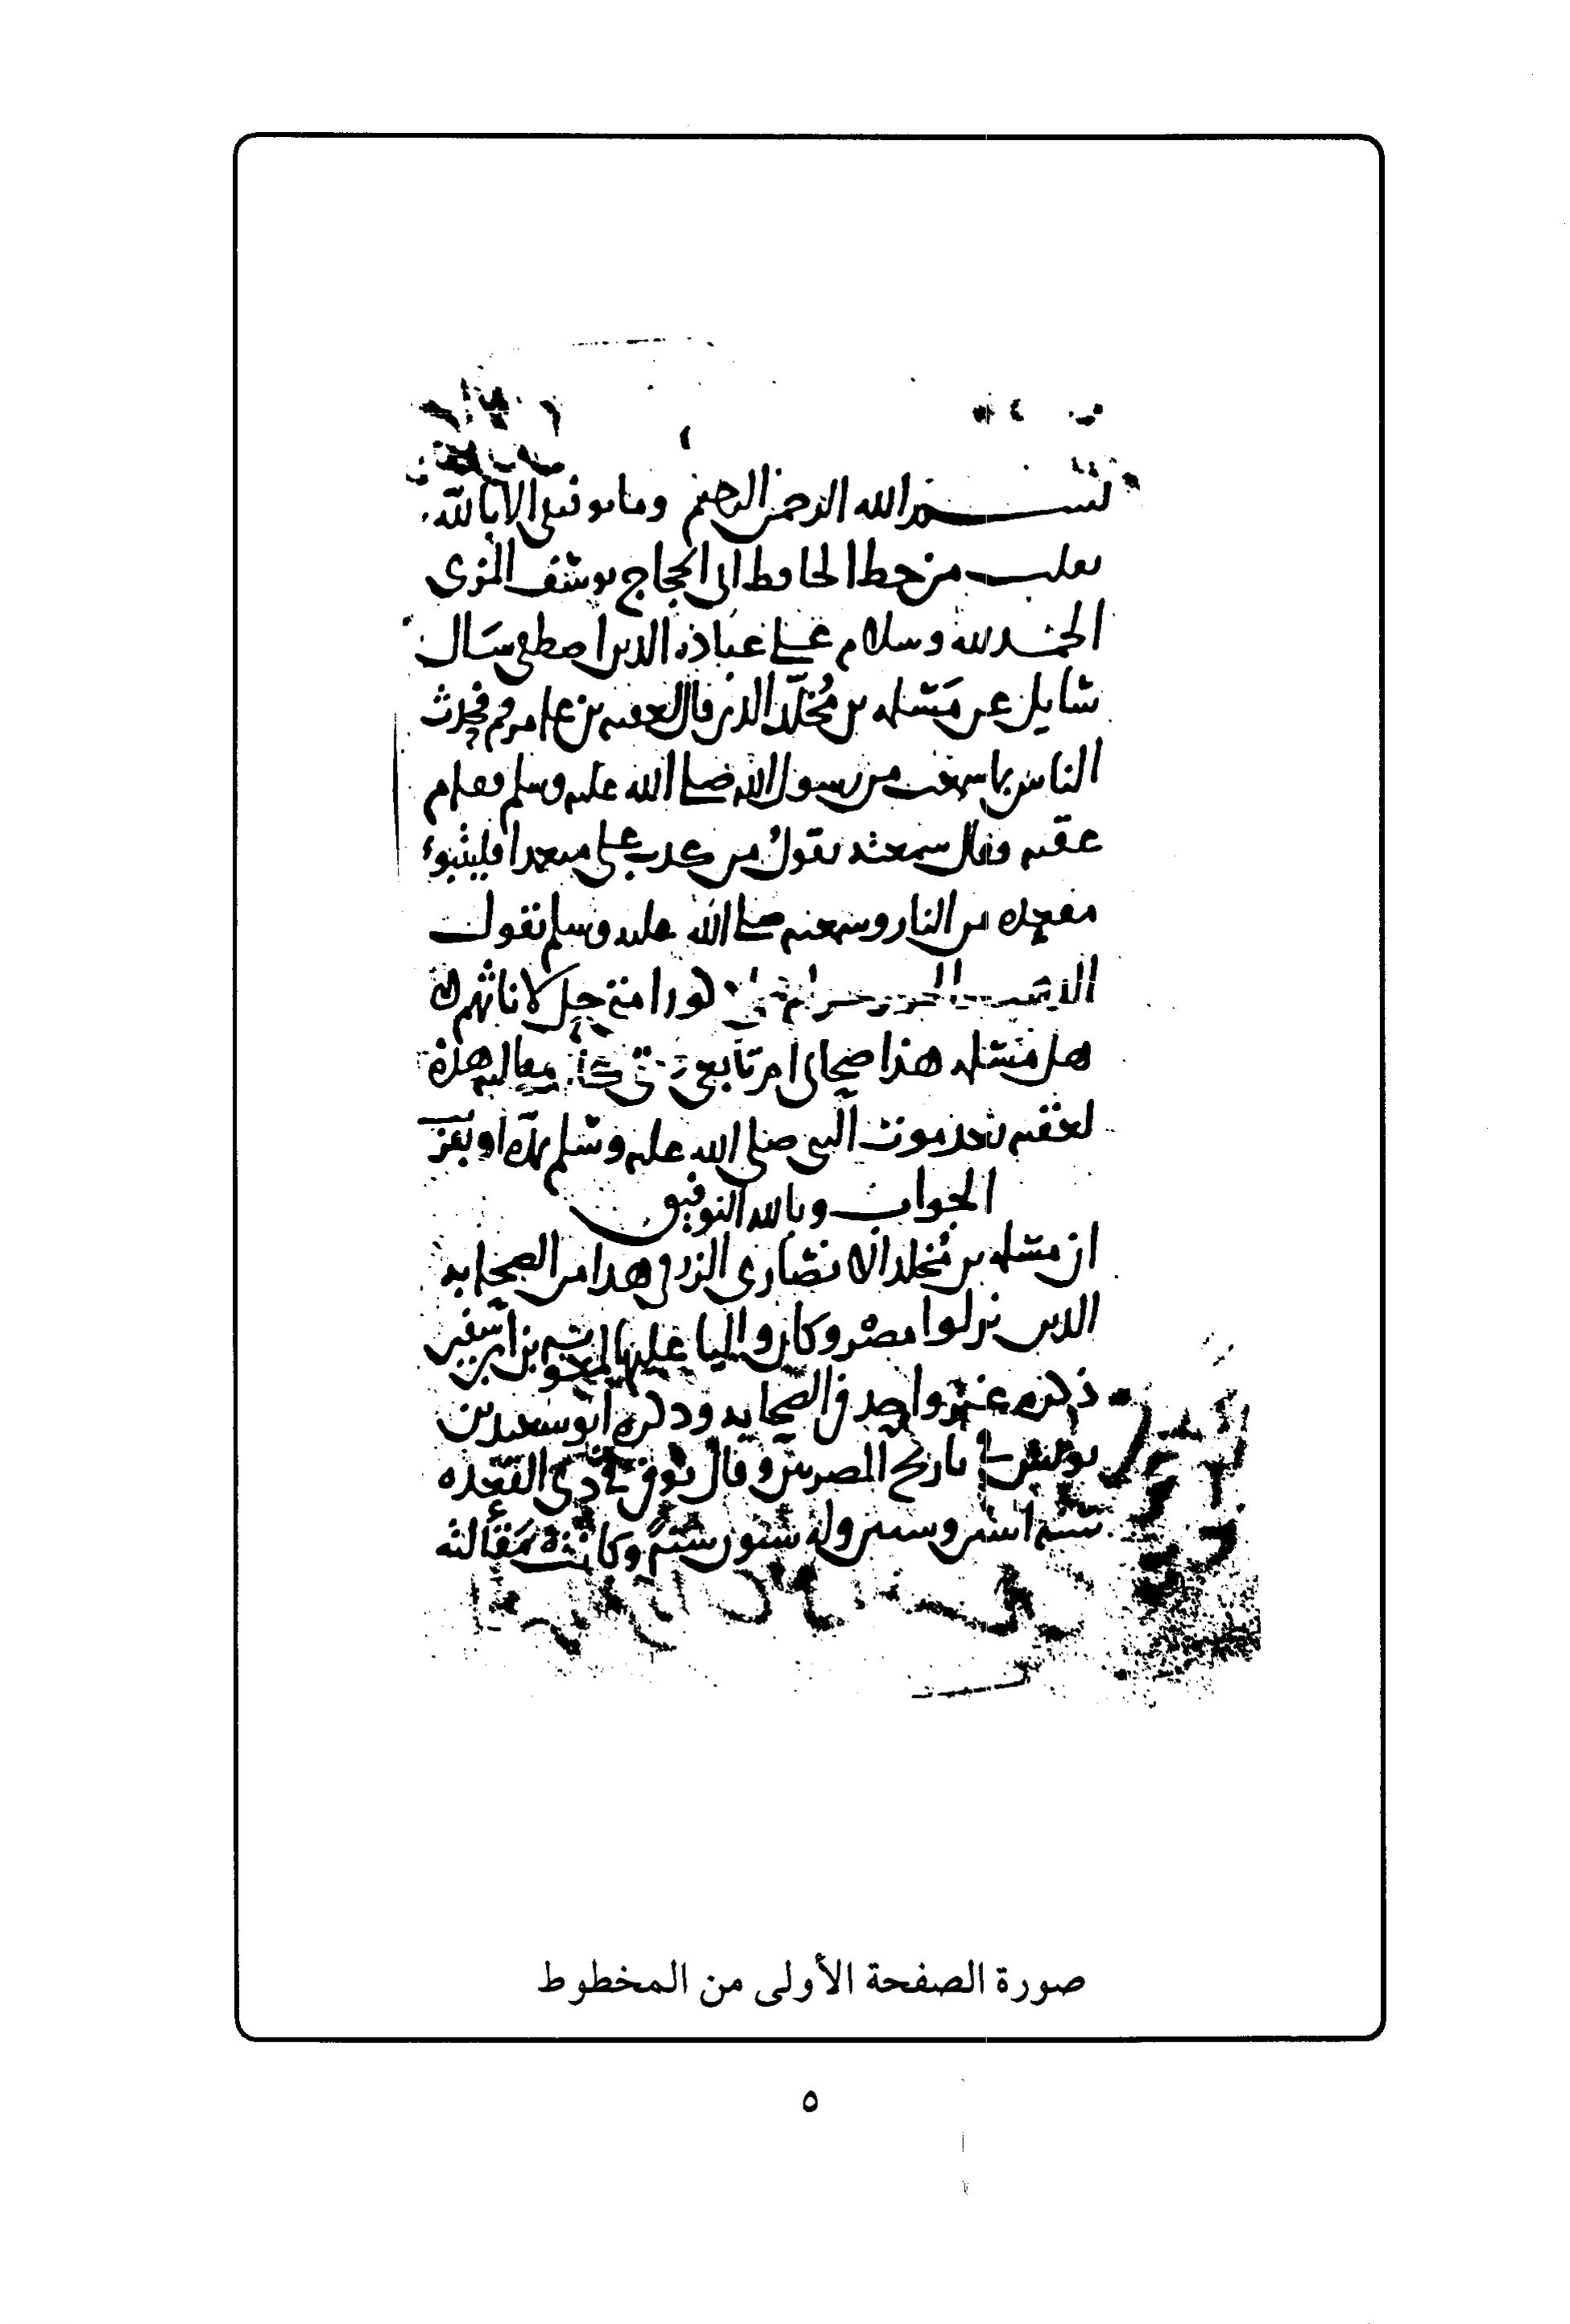 بسم الله الرحمن الرحيم وما توفيقي الا بالله
نقلت من خط الحافظ ابي الحجاج يوسف المزي
الحمد لله وسلام على عباده الذين اصطفى سال
سايل عن مسلمه بن مُخلَّد الذي قال لعقبه بن عامر قم فحدث
الناس بما سمعت من رسول الله صلى الله عليه وسلم فقام
عقبه وقال سمعته يقول من كذب علي متعمدا فليتبوء
مقعده من النار وسمعته صلى الله عليه وسلم يقول
الحرير حرام على ذكور امتي حل لاناثهم
هل مسلمه هذا صحابي ام تابعي كانت مقالته هذه
لعقبه بعد موت النبي صلى الله عليه وسلم
الجواب وبالله التوفيق
ان مسلمه بن مُخلد الانصاري الزرقي هذا من الصحابه
الذين نزلوا مصر وكان واليا عليها لمعويه بن ابي سفين
ذكره غير واحد في الصحابه وذكره ابو سعيد بن
يونس في تاريخ المصريين وقال توفي في ذي القعده
سنه اثنتين وستين وله ستون سنة وكانت مقالته
صورة الصفحة الأولى من المخطوط
٥